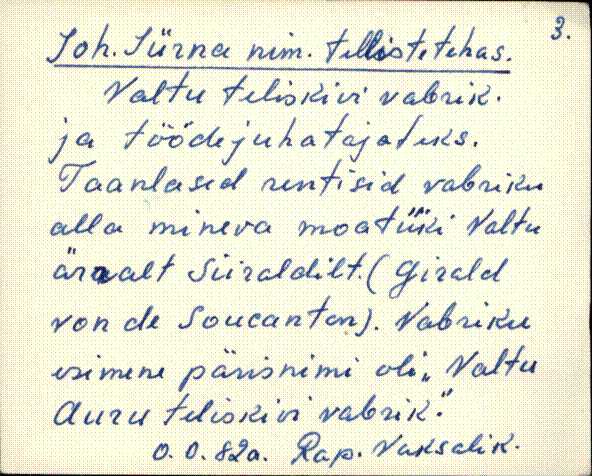 3.
Joh. Sürna nim. tellistetehas.
Valtu teliskivi vabrik.
ja töödejuhatajateks.
Taanlased rentisid vabriku
alla mineva maatüki Valtu
ärralt Siiraldilt. (Girald
von de Soucanton). Vabriku
esimene pärisnimi oli „Valtu
Auru teliskivi vabrik."
O. O. 82a. Rap. Vaksalik.